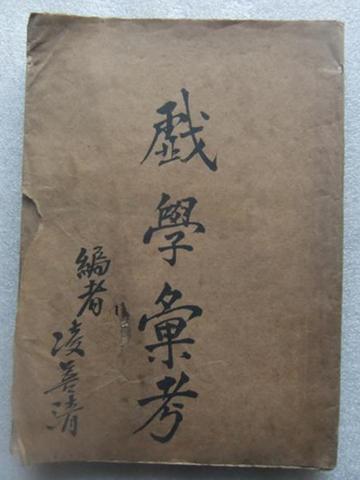 戲學彙考
編者 凌善清